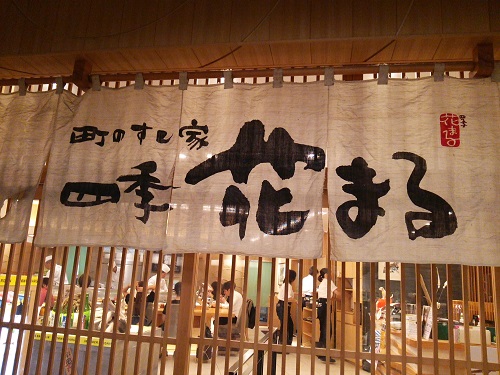 町のすし家
四季花まる
花まる